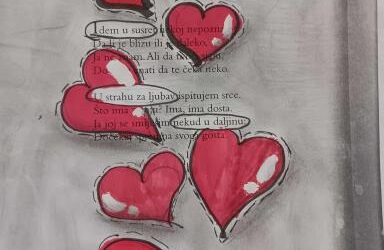 Idem u susret nekoj nepozn
Da li je blizu ili je daleko,
Ja ne znam. Ali da
Do nati da te čeka neko.
U strahu za ljubav ispitujem srce.
Što ima Ima, ima dosta.
Ja joj se nekud u daljinu
svoga gosta.